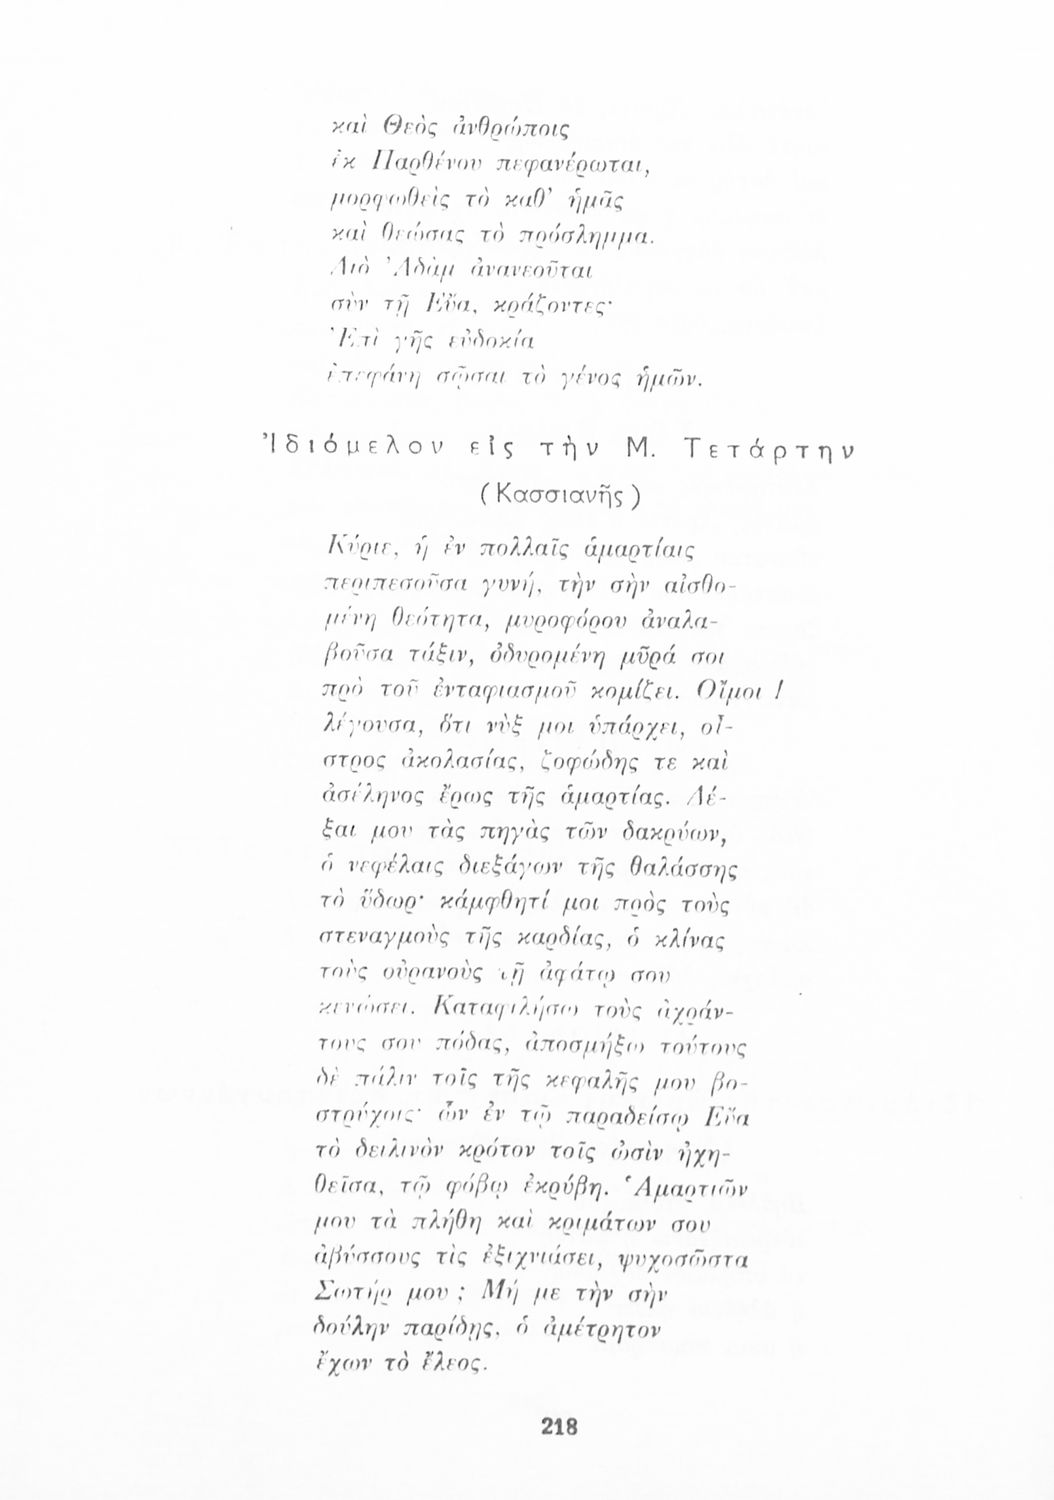 καὶ Θεὸς ἀνθρώποις
ἐκ Παρθένου πεφανέρωται,
μορφωθεὶς τὸ καθ' ἡμᾶς
καὶ θεώσας τὸ πρόσλημμα.
Διὸ Ἀδὰμ ἀνανεοῦται
σὺν τῇ Εὔᾳ, κράζοντες·
Ἐπὶ γῆς εὐδοκία
ἐπεφάνη σῶσαι τὸ γένος ἡμῶν.
Ἰδιόμελον εἰς τὴν Μ. Τετάρτην
(Κασσιανῆς)
Κύριε, ἡ ἐν πολλαῖς ἁμαρτίαις
περιπεσοῦσα γυνή, τὴν σὴν αἰσθο-
μένη θεότητα, μυροφόρου ἀναλα-
βοῦσα τάξιν, ὀδυρομένη μῦρά σοι
πρὸ τοῦ ἐνταφιασμοῦ κομίζει. Οἴμοι !
λέγουσα, ὅτι νὺξ μοι ὑπάρχει, οἶ-
στρος ἀκολασίας, ζοφώδης τε καὶ
ἀσέληνος ἔρως τῆς ἁμαρτίας. Δέ-
ξαι μου τὰς πηγὰς τῶν δακρύων,
ὁ νεφέλαις διεξάγων τῆς θαλάσσης
τὸ ὕδωρ· κάμφθητί μοι πρὸς τοὺς
στεναγμοὺς τῆς καρδίας, ὁ κλίνας
τοὺς οὐρανοὺς τῇ ἀφάτῳ σου
κενώσει. Καταφιλήσω τοὺς ἀχράν-
τους σου πόδας, ἀποσμήξω τούτους
δὲ πάλιν τοῖς τῆς κεφαλῆς μου βο-
στρύχοις· ὧν ἐν τῷ παραδείσῳ Εὔα
τὸ δειλινὸν κρότον τοῖς ὠσὶν ἠχη-
θεῖσα, τῷ φόβῳ ἐκρύβη. Ἁμαρτιῶν
μου τὰ πλήθη καὶ κριμάτων σου
ἀβύσσους τὶς ἐξιχνιάσει, ψυχοσῶστα
Σωτήρ μου ; Μή με τὴν σὴν
δούλην παρίδῃς, ὁ ἀμέτρητον
ἔχων τὸ ἔλεος.
218